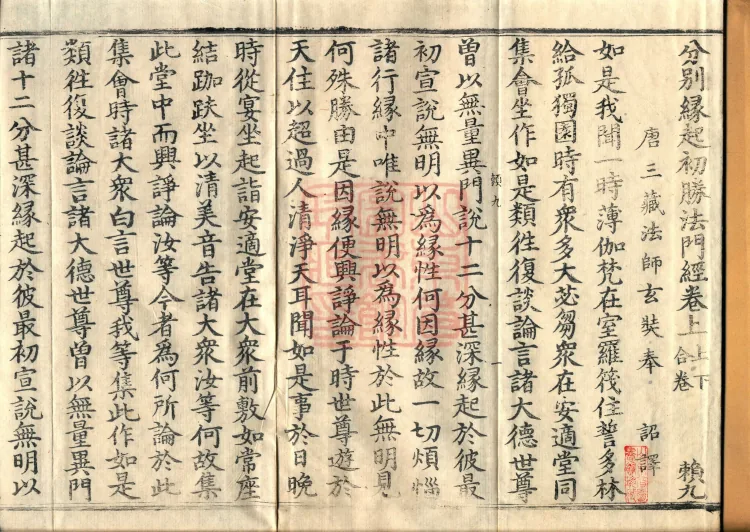 分別緣起初勝法門經卷上 上下合卷 賴九
唐三藏法師玄奘奉 詔譯
如是我聞一時薄伽梵在室羅筏住誓多林
給孤獨園時有衆多大苾芻衆在安適堂同
集會坐作如是類往復談論言諸大德世尊
賴九
曽以無量異門說十二分甚深緣起於彼最
初宣說無明以爲緣性何因緣故一切煩惱
諸行緣中唯說無明以爲緣性於此無明見
何殊勝由是因緣便興諍論于時世尊遊於
天住以超過人清淨天耳聞如是事於日晚
時從宴坐起詣安適堂在大衆前敷如常座
結跏趺坐以清美音告諸大衆汝等何故集
此堂中而興諍論汝等今者爲何所論於此
集會時諸大衆白言世尊我等集此作如是
類往復談論言諸大德世尊曽以無量異門
諸十二分甚深緣起於彼最初宣說無明以